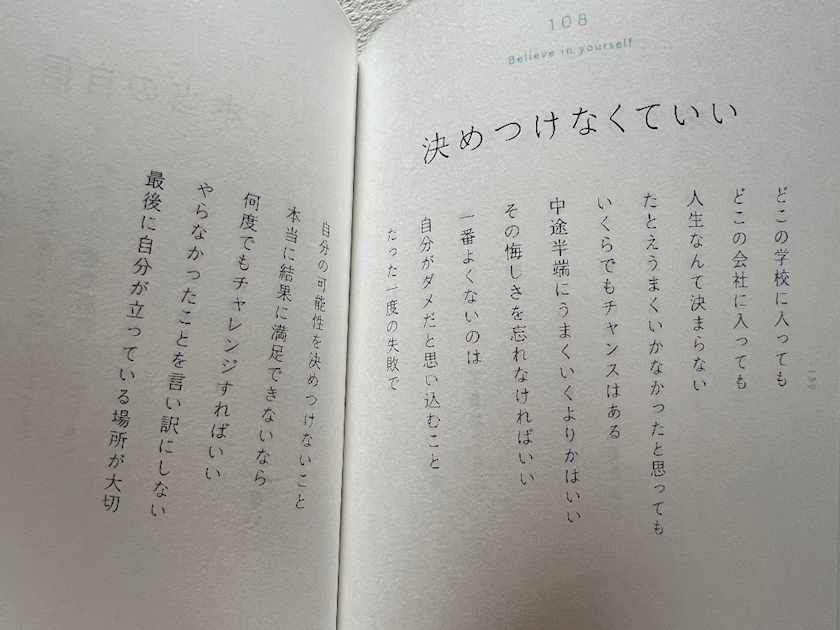 108
Believe in yourself
決めつけなくていい
どこの学校に入っても
どこの会社に入っても
人生なんて決まらない
たとえうまくいかなかったと思っても
いくらでもチャンスはある
中途半端にうまくいくよりかはいい
その悔しさを忘れなければいい
一番よくないのは
自分がダメだと思い込むこと
たった一度の失敗で
自分の可能性を決めつけないこと
本当に結果に満足できないなら
何度でもチャレンジすればいい
やらなかったことを言い訳にしない
最後に自分が立っている場所が大切